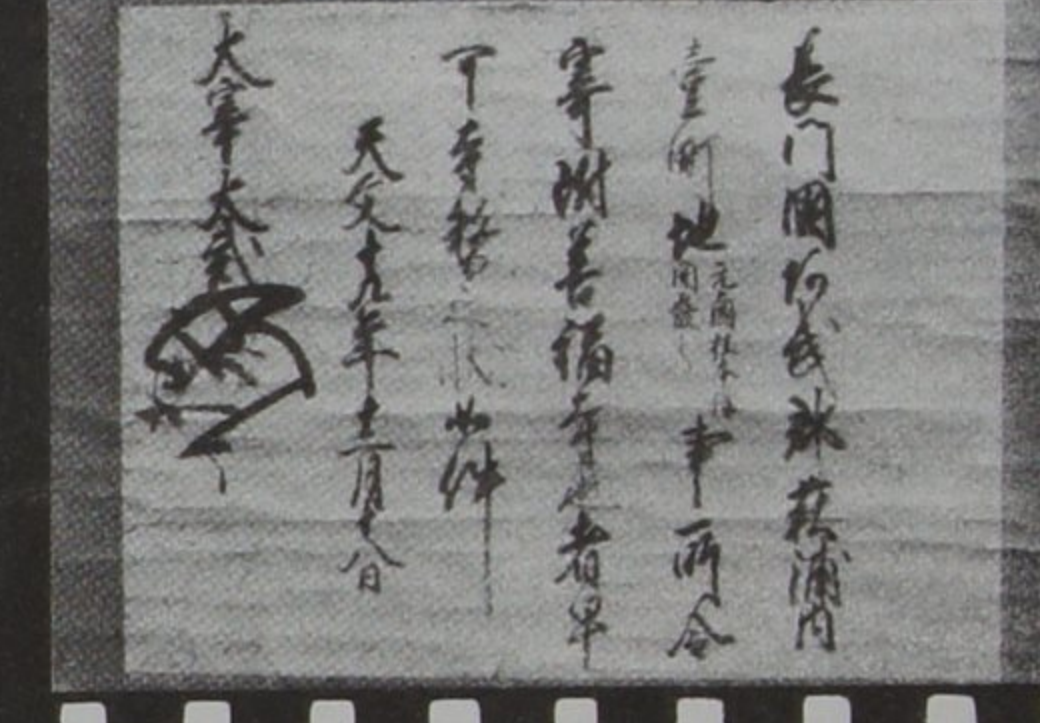 長門國阿武郡萩浦内
壹町地 元國 開發 事所令
寄附善福寺也者早
可寺務之状如件
天文十九年十二月十八日
大宰大貳